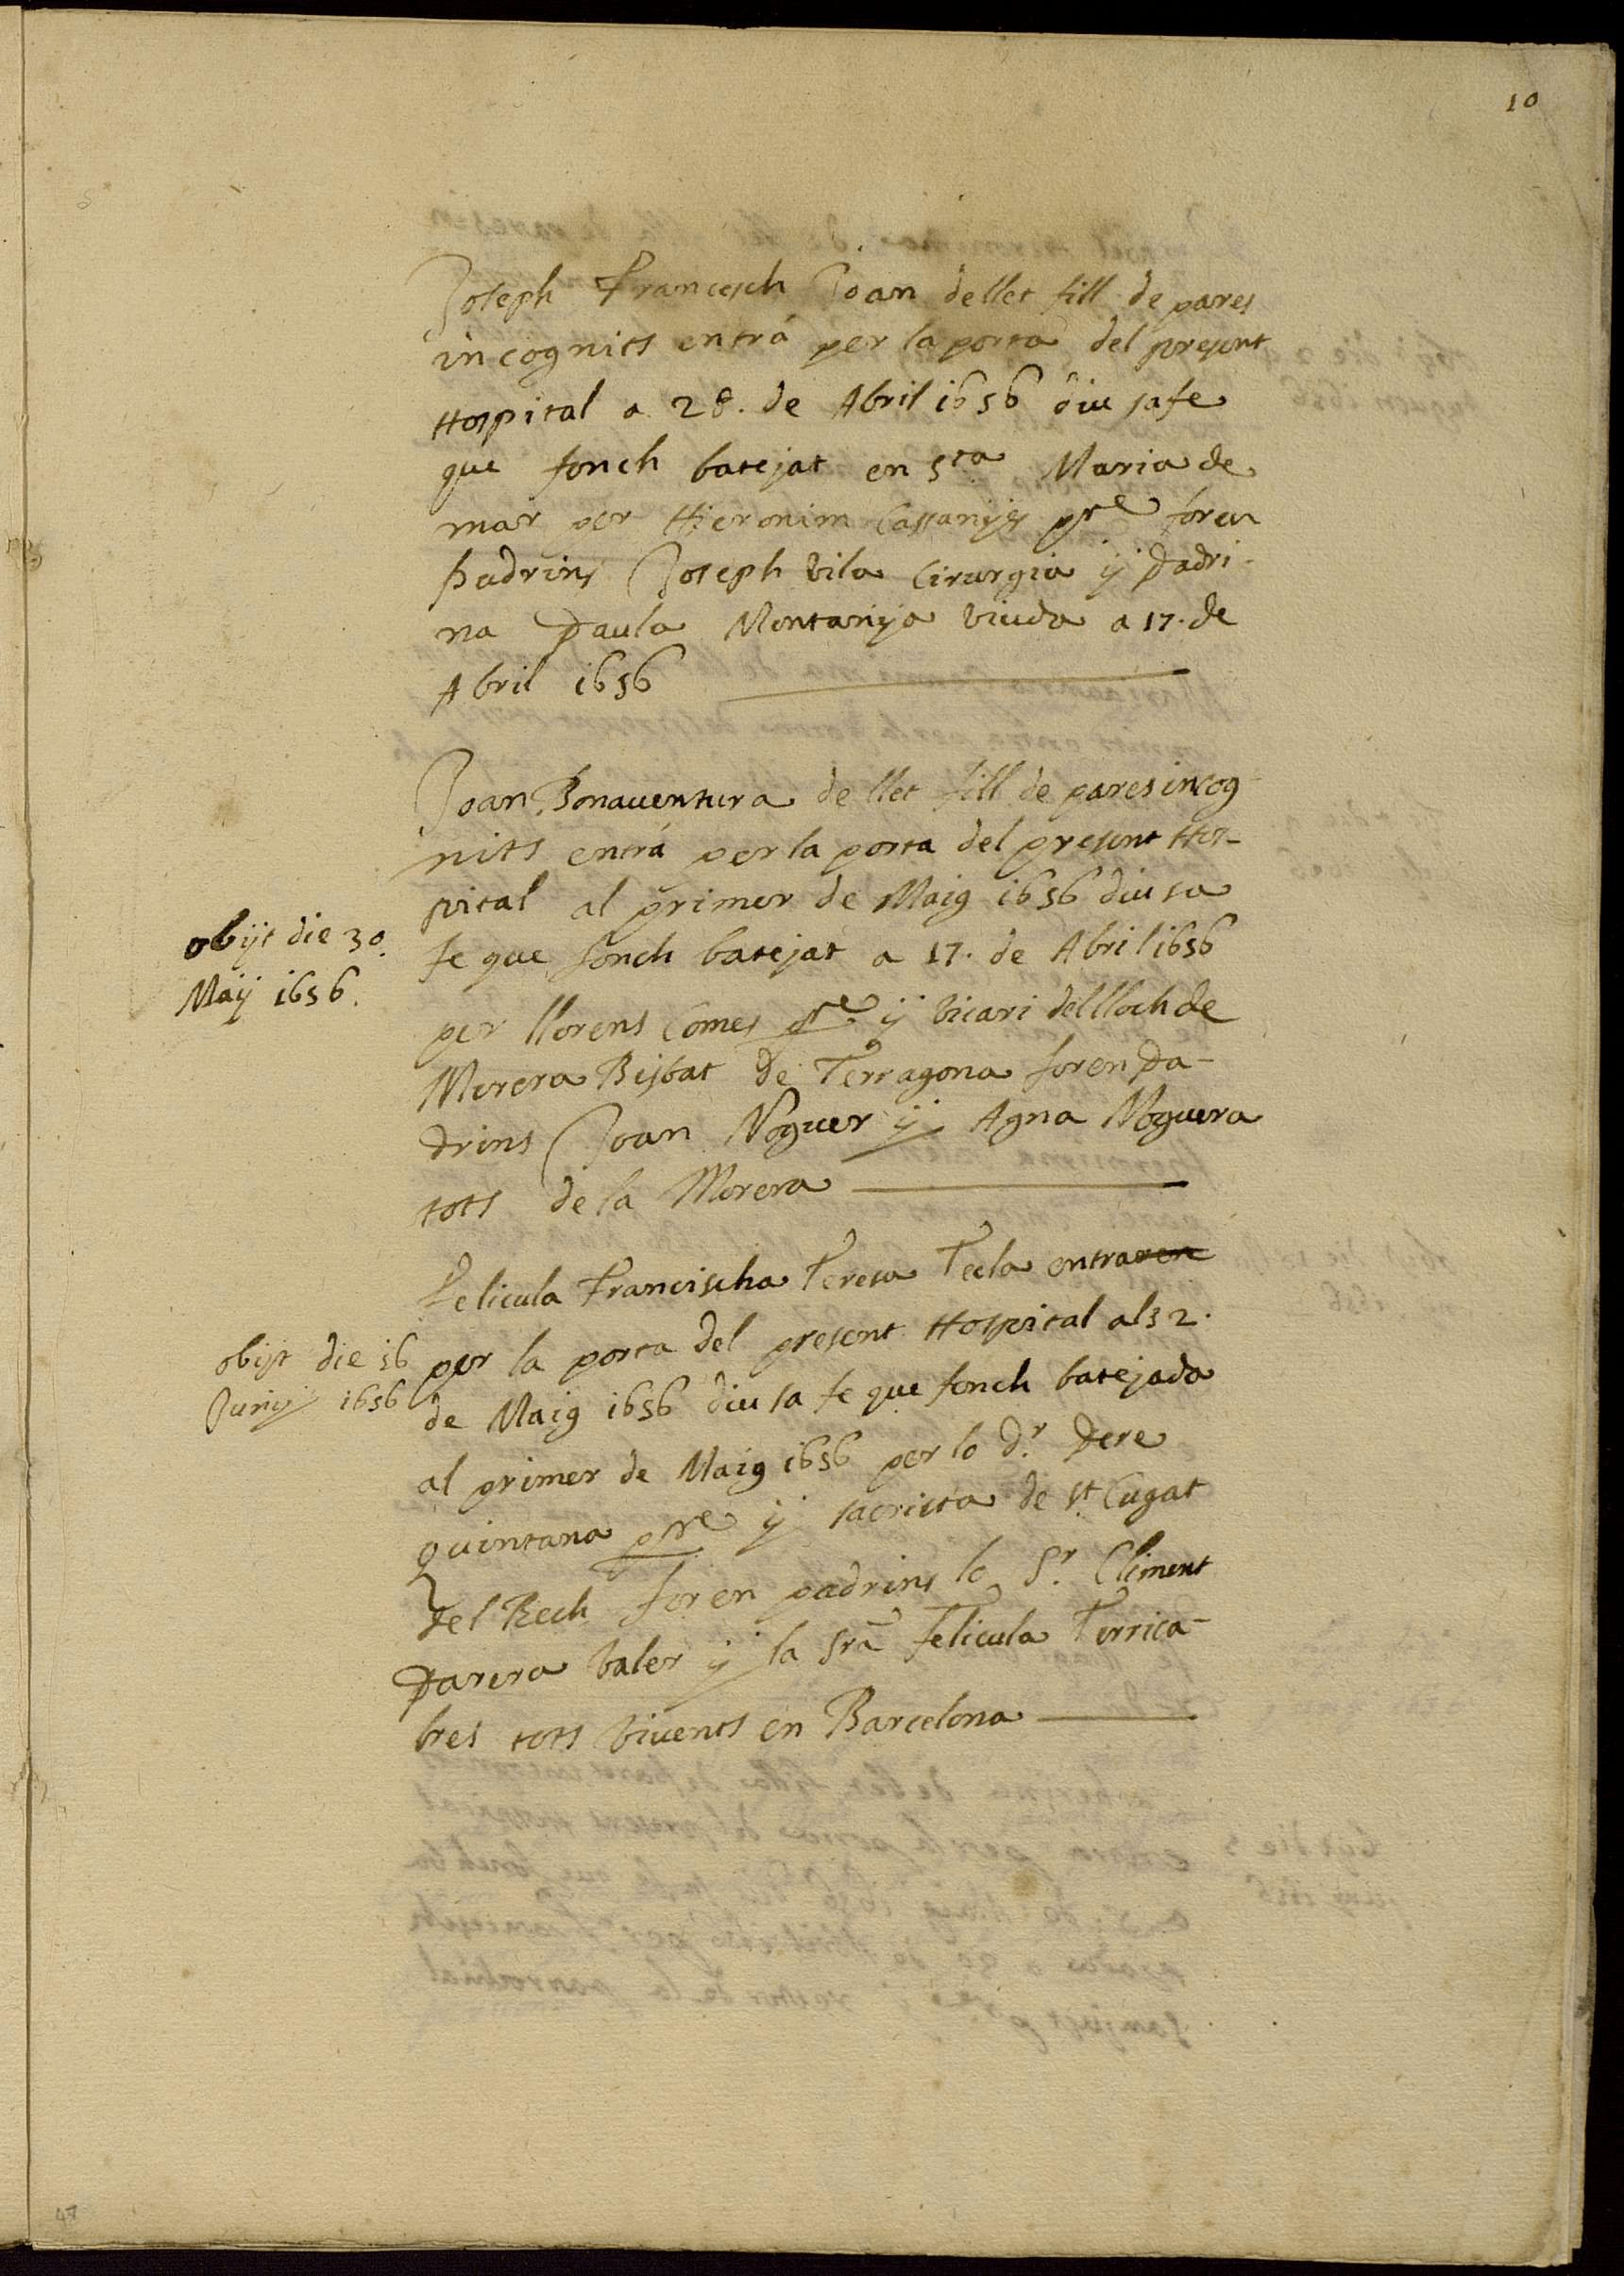 10
Joseph Francesch Joan dellet fill de pares
incognits entrá per la porta del present
Hospital a 28. de Abril 1656 diu sa fe
que fonch batejat en Sta Maria de
mar per Hieronim Cassanyes pre foren
Padrins Joseph Vila Cirurgia ÿ Padri-
na Paula Montanya viuda a 17. de
Abril 1656
Joan Bonaventura de llet fill de pares incog
nits entrá per la porta del present Hos-
pital al primer de Maig 1656 diu sa
obijt die 30.
Maij 1656.
fe que fonch batejat a 17. de Abril 1656
per llorens Comes pre ÿ vicari del lloch de
Morera Bisbat de Terragona foren Pa-
drins Joan Noguer ÿ Agna Noguera
tots de la Morera
Felicula Francischa Teresa Tecla entraren
obijt die 16
Junij 1656
per la porta del present Hospital als 2.
de Maig 1656 diu sa fe que fonch batejada
al primer de Maig 1656 per lo Dr. Pere
Quintana pre ÿ sacrista de St Cugat
del Rech foren padrins lo Sr. Climent
Parera Valer ÿ la Srã Felicula Terrica-
bres tots vivents en Barcelona
47